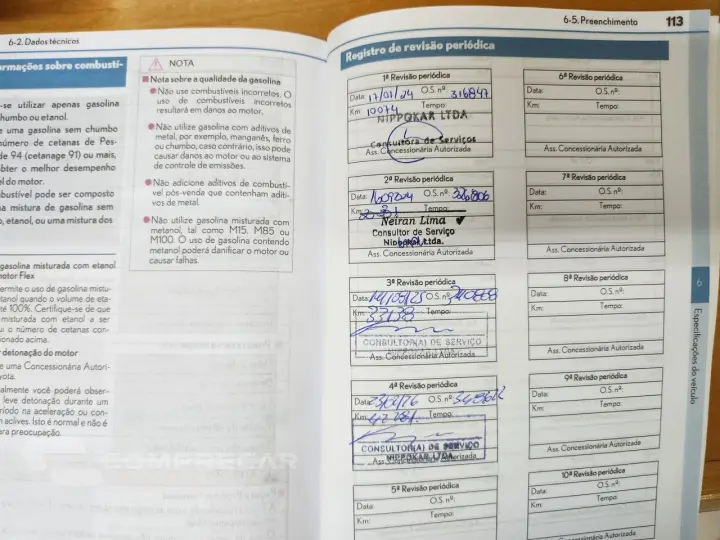 6-2. Dados técnicos
ormações sobre combustí-
-se utilizar apenas gasolina
chumbo ou etanol.
e uma gasolina sem chumbo
número de cetanas de Pes-
de 94 (cetanage 91) ou mais,
obter o melhor desempenho
el do motor.
bustível pode ser composto
a mistura de gasolina sem
o, etanol, ou uma mistura dos
gasolina misturada com etanol
motor Flex
ermite o uso de gasolina mistu-
etanol quando o volume de eta-
té 100%. Certifique-se de que
misturada com etanol a ser
ui o número de cetanas con-
ionado acima.
detonação do motor
e uma Concessionária Autori-
yota.
almente você poderá obser-
leve detonação durante um
ríodo na aceleração ou con-
m aclives. Isto é normal e não é
ara preocupação.
NOTA
Nota sobre a qualidade da gasolina
Não use combustíveis incorretos. O
uso de combustíveis incorretos
resultará em danos ao motor.
Não utilize gasolina com aditivos de
metal, por exemplo, manganês, ferro
ou chumbo, caso contrário, isso pode
causar danos ao motor ou ao sistema
de controle de emissões.
Não adicione aditivos de combustí-
vel pós-venda que contenham aditi-
vos de metal.
Não utilize gasolina misturada com
metanol, tal como M15, M85 ou
M100. O uso de gasolina contendo
metanol poderá danificar o motor ou
causar falhas.
6-5. Preenchimento 113
Registro de revisão periódica
1ª Revisão periódica
Data: 17/01/24 O.S. nº: 316847
Km: 10074 Tempo:
NIPPOKAR LTDA
Consultora de Serviços
Ass. Concessionária Autorizada
2ª Revisão periódica
Data: O.S. nº:
Km: Tempo:
Neiran Lima
Consultor de Serviço
Nippokar Ltda.
Ass. Concessionária Autorizada
3ª Revisão periódica
Data: O.S. nº:
Km: 33138 Tempo:
CONSULTOR(A) DE SERVIÇO
Ass. Concessionária Autorizada
4ª Revisão periódica
Data: O.S. nº:
Km: Tempo:
CONSULTOR(A) DE SERVIÇO
NIPPOKAR LTDA.
Ass. Concessionária Autorizada
5ª Revisão periódica
Data: O.S. nº:
Km: Tempo:
6ª Revisão periódica
Data: O.S. nº:
Km: Tempo:
Ass. Concessionária Autorizada
7ª Revisão periódica
Data: O.S. nº:
Km: Tempo:
Ass. Concessionária Autorizada
8ª Revisão periódica
Data: O.S. nº:
Km: Tempo:
Ass. Concessionária Autorizada
9ª Revisão periódica
Data: O.S. nº:
Km: Tempo:
Ass. Concessionária Autorizada
10ª Revisão periódica
Data: O.S. nº:
Km: Tempo:
Ass. Concessionária Autorizada
6
Especificações do veículo